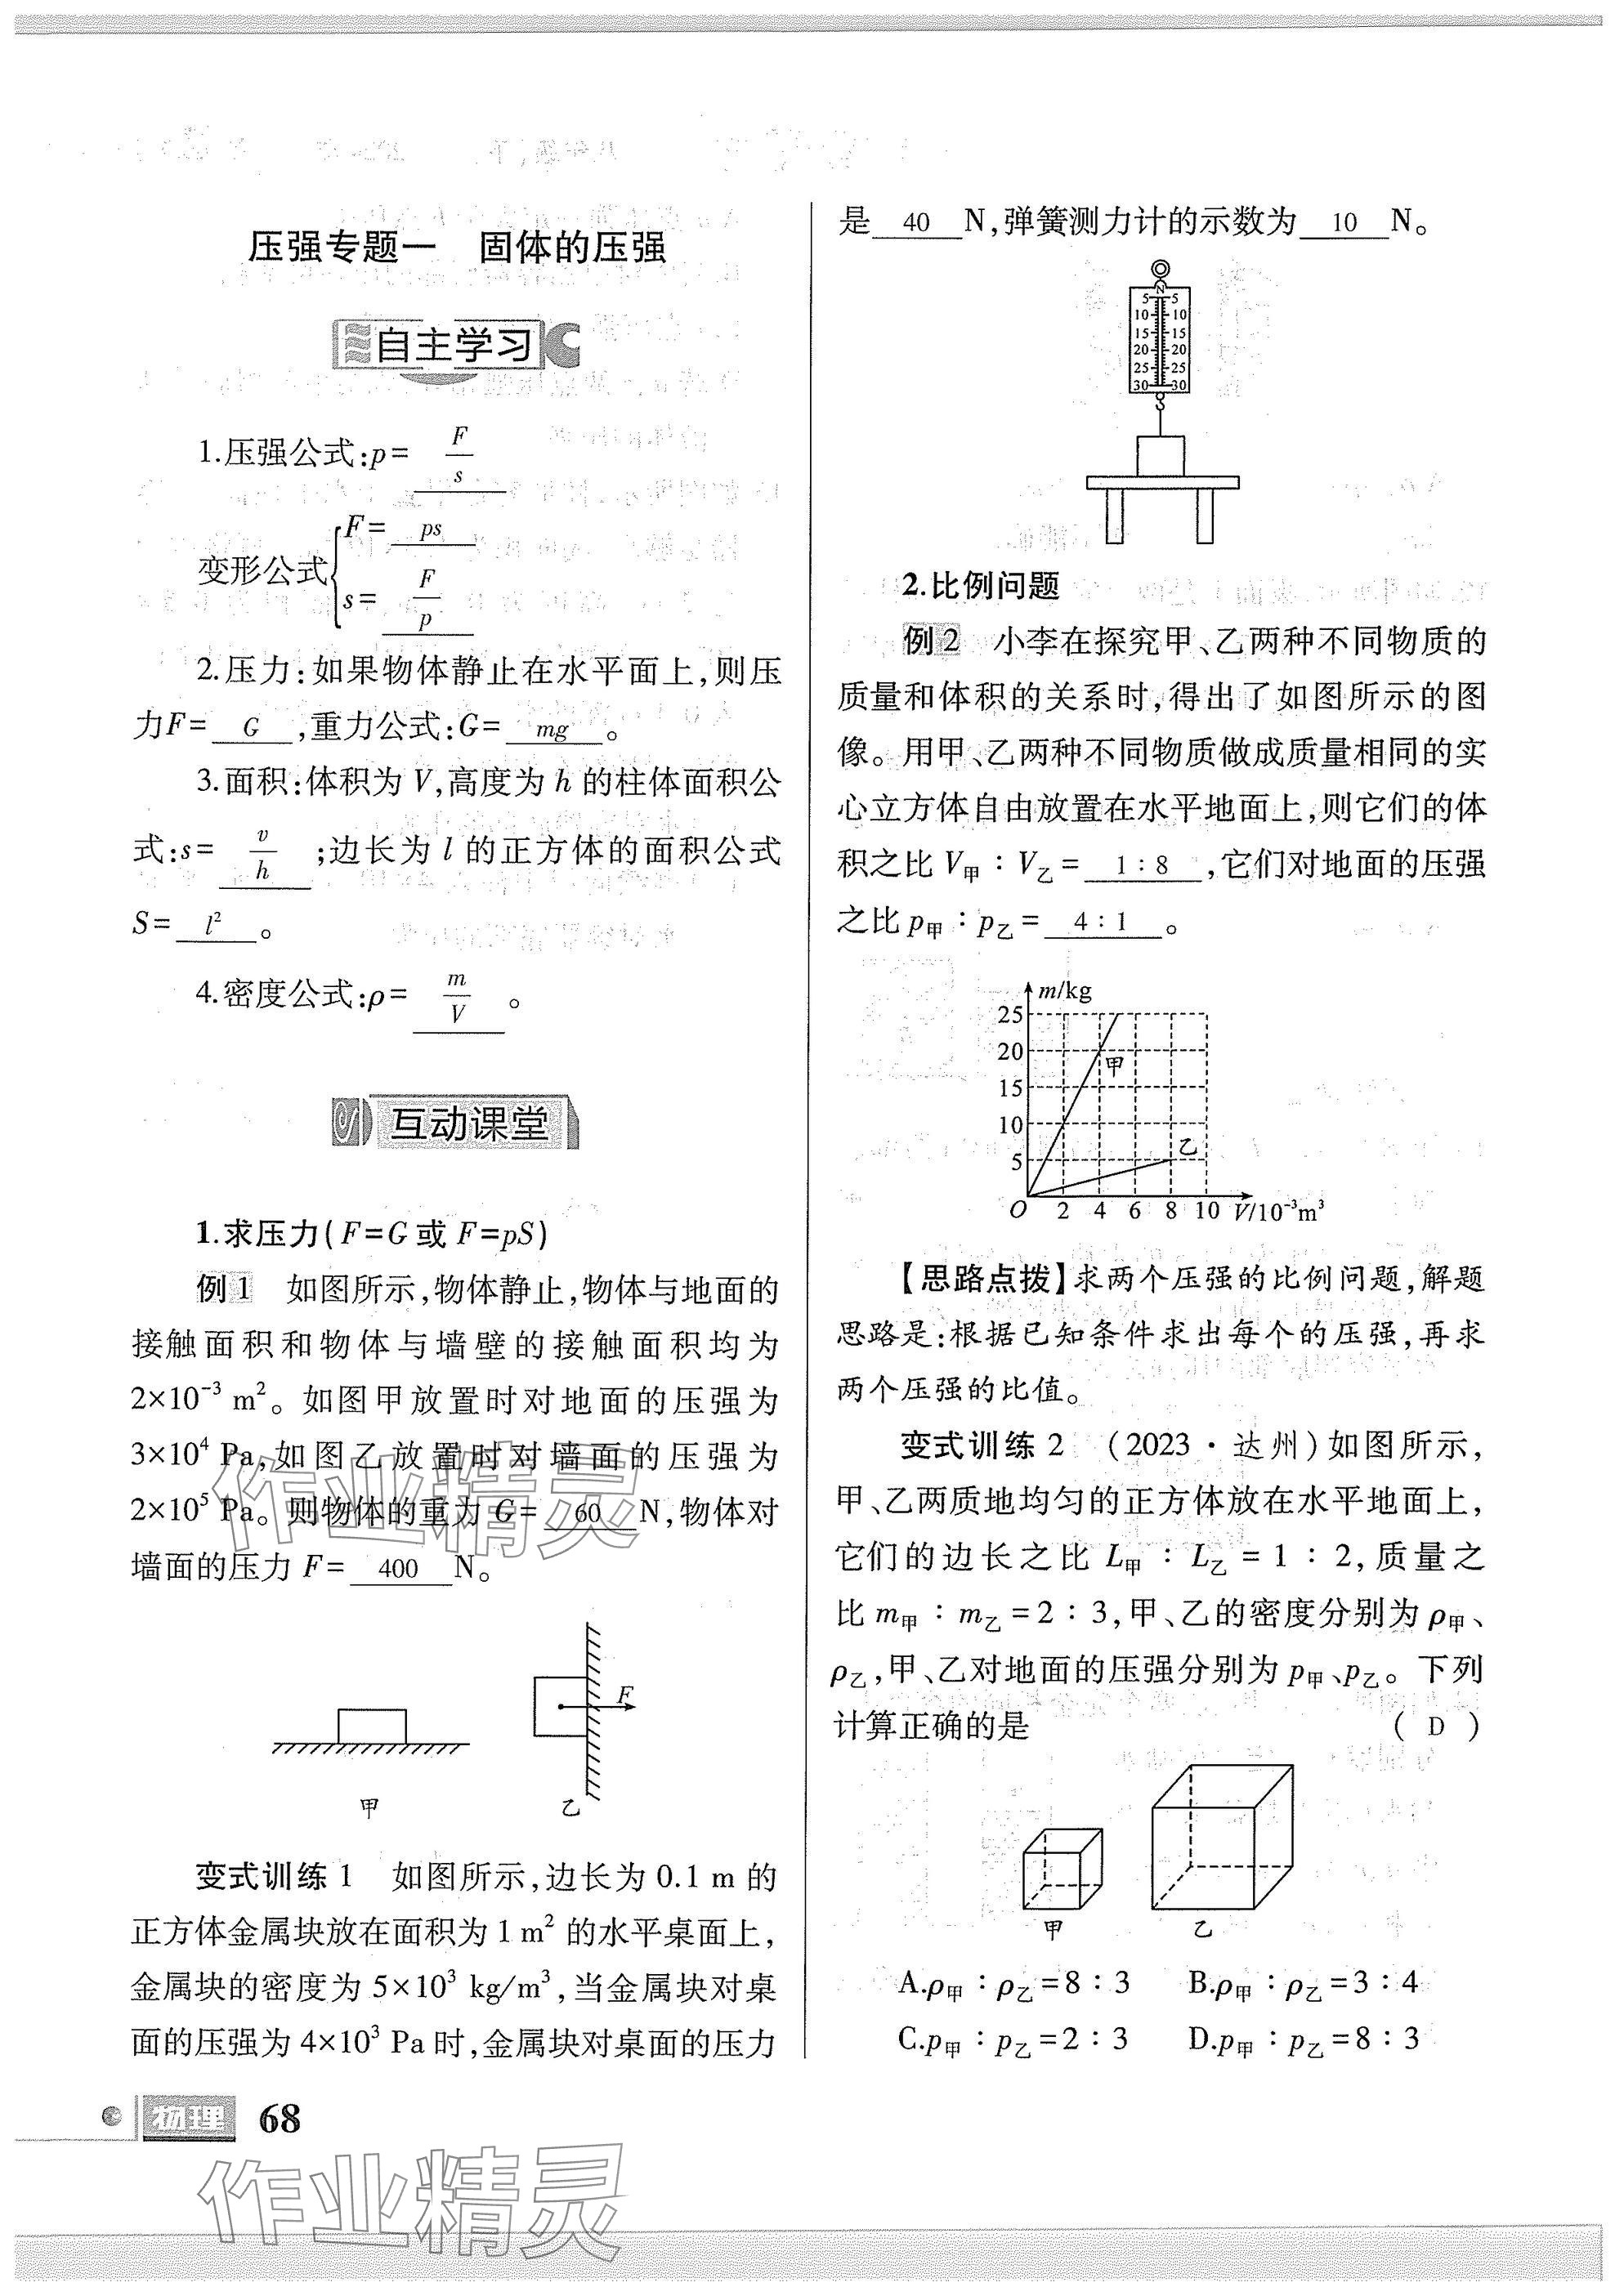 压强专题一　固体的压强
自主学习
1.压强公式:p= F/s
变形公式{F= ps
s= F/p
2.压力:如果物体静止在水平面上,则压
力F= G ,重力公式:G= mg 。
3.面积:体积为 V,高度为 h 的柱体面积公
式:s= v/h ;边长为 l 的正方体的面积公式
S= l² 。
4.密度公式:ρ= m/V 。
互动课堂
1.求压力(F=G 或 F=pS)
例1　如图所示,物体静止,物体与地面的
接触面积和物体与墙壁的接触面积均为
2×10⁻³ m²。如图甲放置时对地面的压强为
3×10⁴ Pa,如图乙放置时对墙面的压强为
2×10⁵ Pa。则物体的重力 G= 60 N,物体对
墙面的压力 F= 400 N。
F
甲　乙
变式训练1　如图所示,边长为 0.1 m 的
正方体金属块放在面积为 1 m² 的水平桌面上,
金属块的密度为 5×10³ kg/m³,当金属块对桌
面的压强为 4×10³ Pa 时,金属块对桌面的压力
物理 68
作业精灵
作业精灵
是 40 N,弹簧测力计的示数为 10 N。
N
5 5
10 10
15 15
20 20
25 25
30 30
2.比例问题
例2　小李在探究甲、乙两种不同物质的
质量和体积的关系时,得出了如图所示的图
像。用甲、乙两种不同物质做成质量相同的实
心立方体自由放置在水平地面上,则它们的体
积之比 V甲∶V乙= 1∶8 ,它们对地面的压强
之比 p甲∶p乙= 4∶1 。
m/kg
25
20
15
10
5
甲
乙
O 2 4 6 8 10 V/10⁻³m³
【思路点拨】求两个压强的比例问题,解题
思路是:根据已知条件求出每个的压强,再求
两个压强的比值。
变式训练2　(2023·达州)如图所示,
甲、乙两质地均匀的正方体放在水平地面上,
它们的边长之比 L甲∶L乙=1∶2,质量之
比 m甲∶m乙=2∶3,甲、乙的密度分别为 ρ甲、
ρ乙,甲、乙对地面的压强分别为 p甲、p乙。下列
计算正确的是　( D )
甲　乙
A.ρ甲∶ρ乙=8∶3　B.ρ甲∶ρ乙=3∶4
C.p甲∶p乙=2∶3　D.p甲∶p乙=8∶3